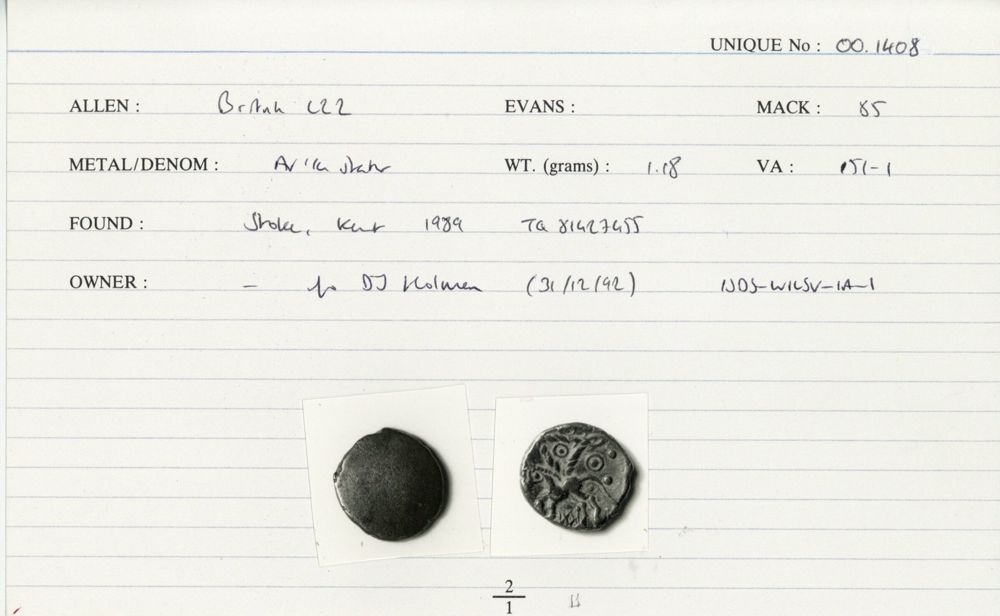 UNIQUE No : 00.1408
ALLEN : British L22 EVANS : MACK : 85
METAL/DENOM : AV 1/4 stater WT. (grams) : 1.18 VA : 151-1
FOUND : Stoke, Kent 1989 TQ 81427455
OWNER : – DJ Holman (31/12/92)
2
1